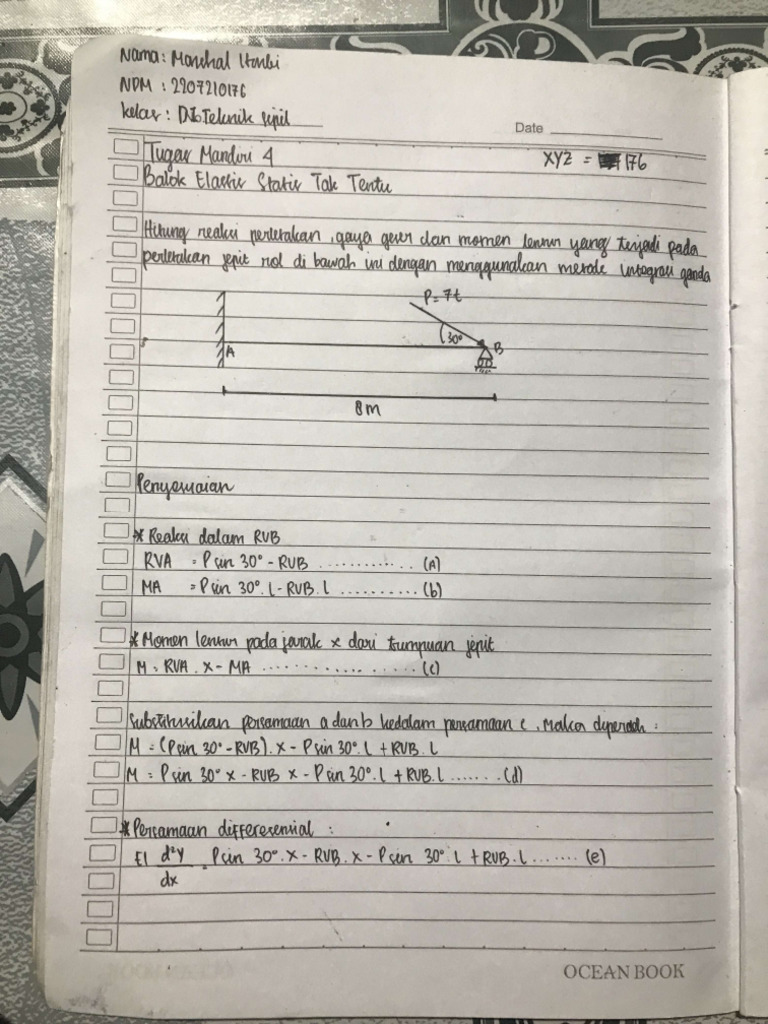 Nama: Marshal
NPM: 2207210176
Kelas: Teknik Sipil
Date
Tugas Mandiri 4
XYZ = 176
Balok Elastis Statis Tak Tentu
Hitung reaksi perletakan, gaya geser dan momen lentur yang terjadi pada
perletakan jepit rol di bawah ini dengan menggunakan metode integrasi ganda
P = 7t
30°
A
B
8m
Penyesuaian
* Reaksi dalam RVB
RVA = P sin 30° - RVB ............ (A)
MA = P sin 30°. L - RVB. L .......... (b)
* Momen lentur pada jarak x dari tumpuan jepit
M = RVA. x - MA .................. (c)
Substitusikan persamaan a dan b kedalam persamaan c, maka diperoleh :
M = (P sin 30° - RVB). x - P sin 30°. L + RVB. L
M = P sin 30° x - RVB x - P sin 30°. L + RVB. L ....... (d)
* Persamaan differesensial :
EI d²y/dx = P sin 30°. x - RVB. x - P sin 30°. L + RVB. L ....... (e)
OCEAN BOOK